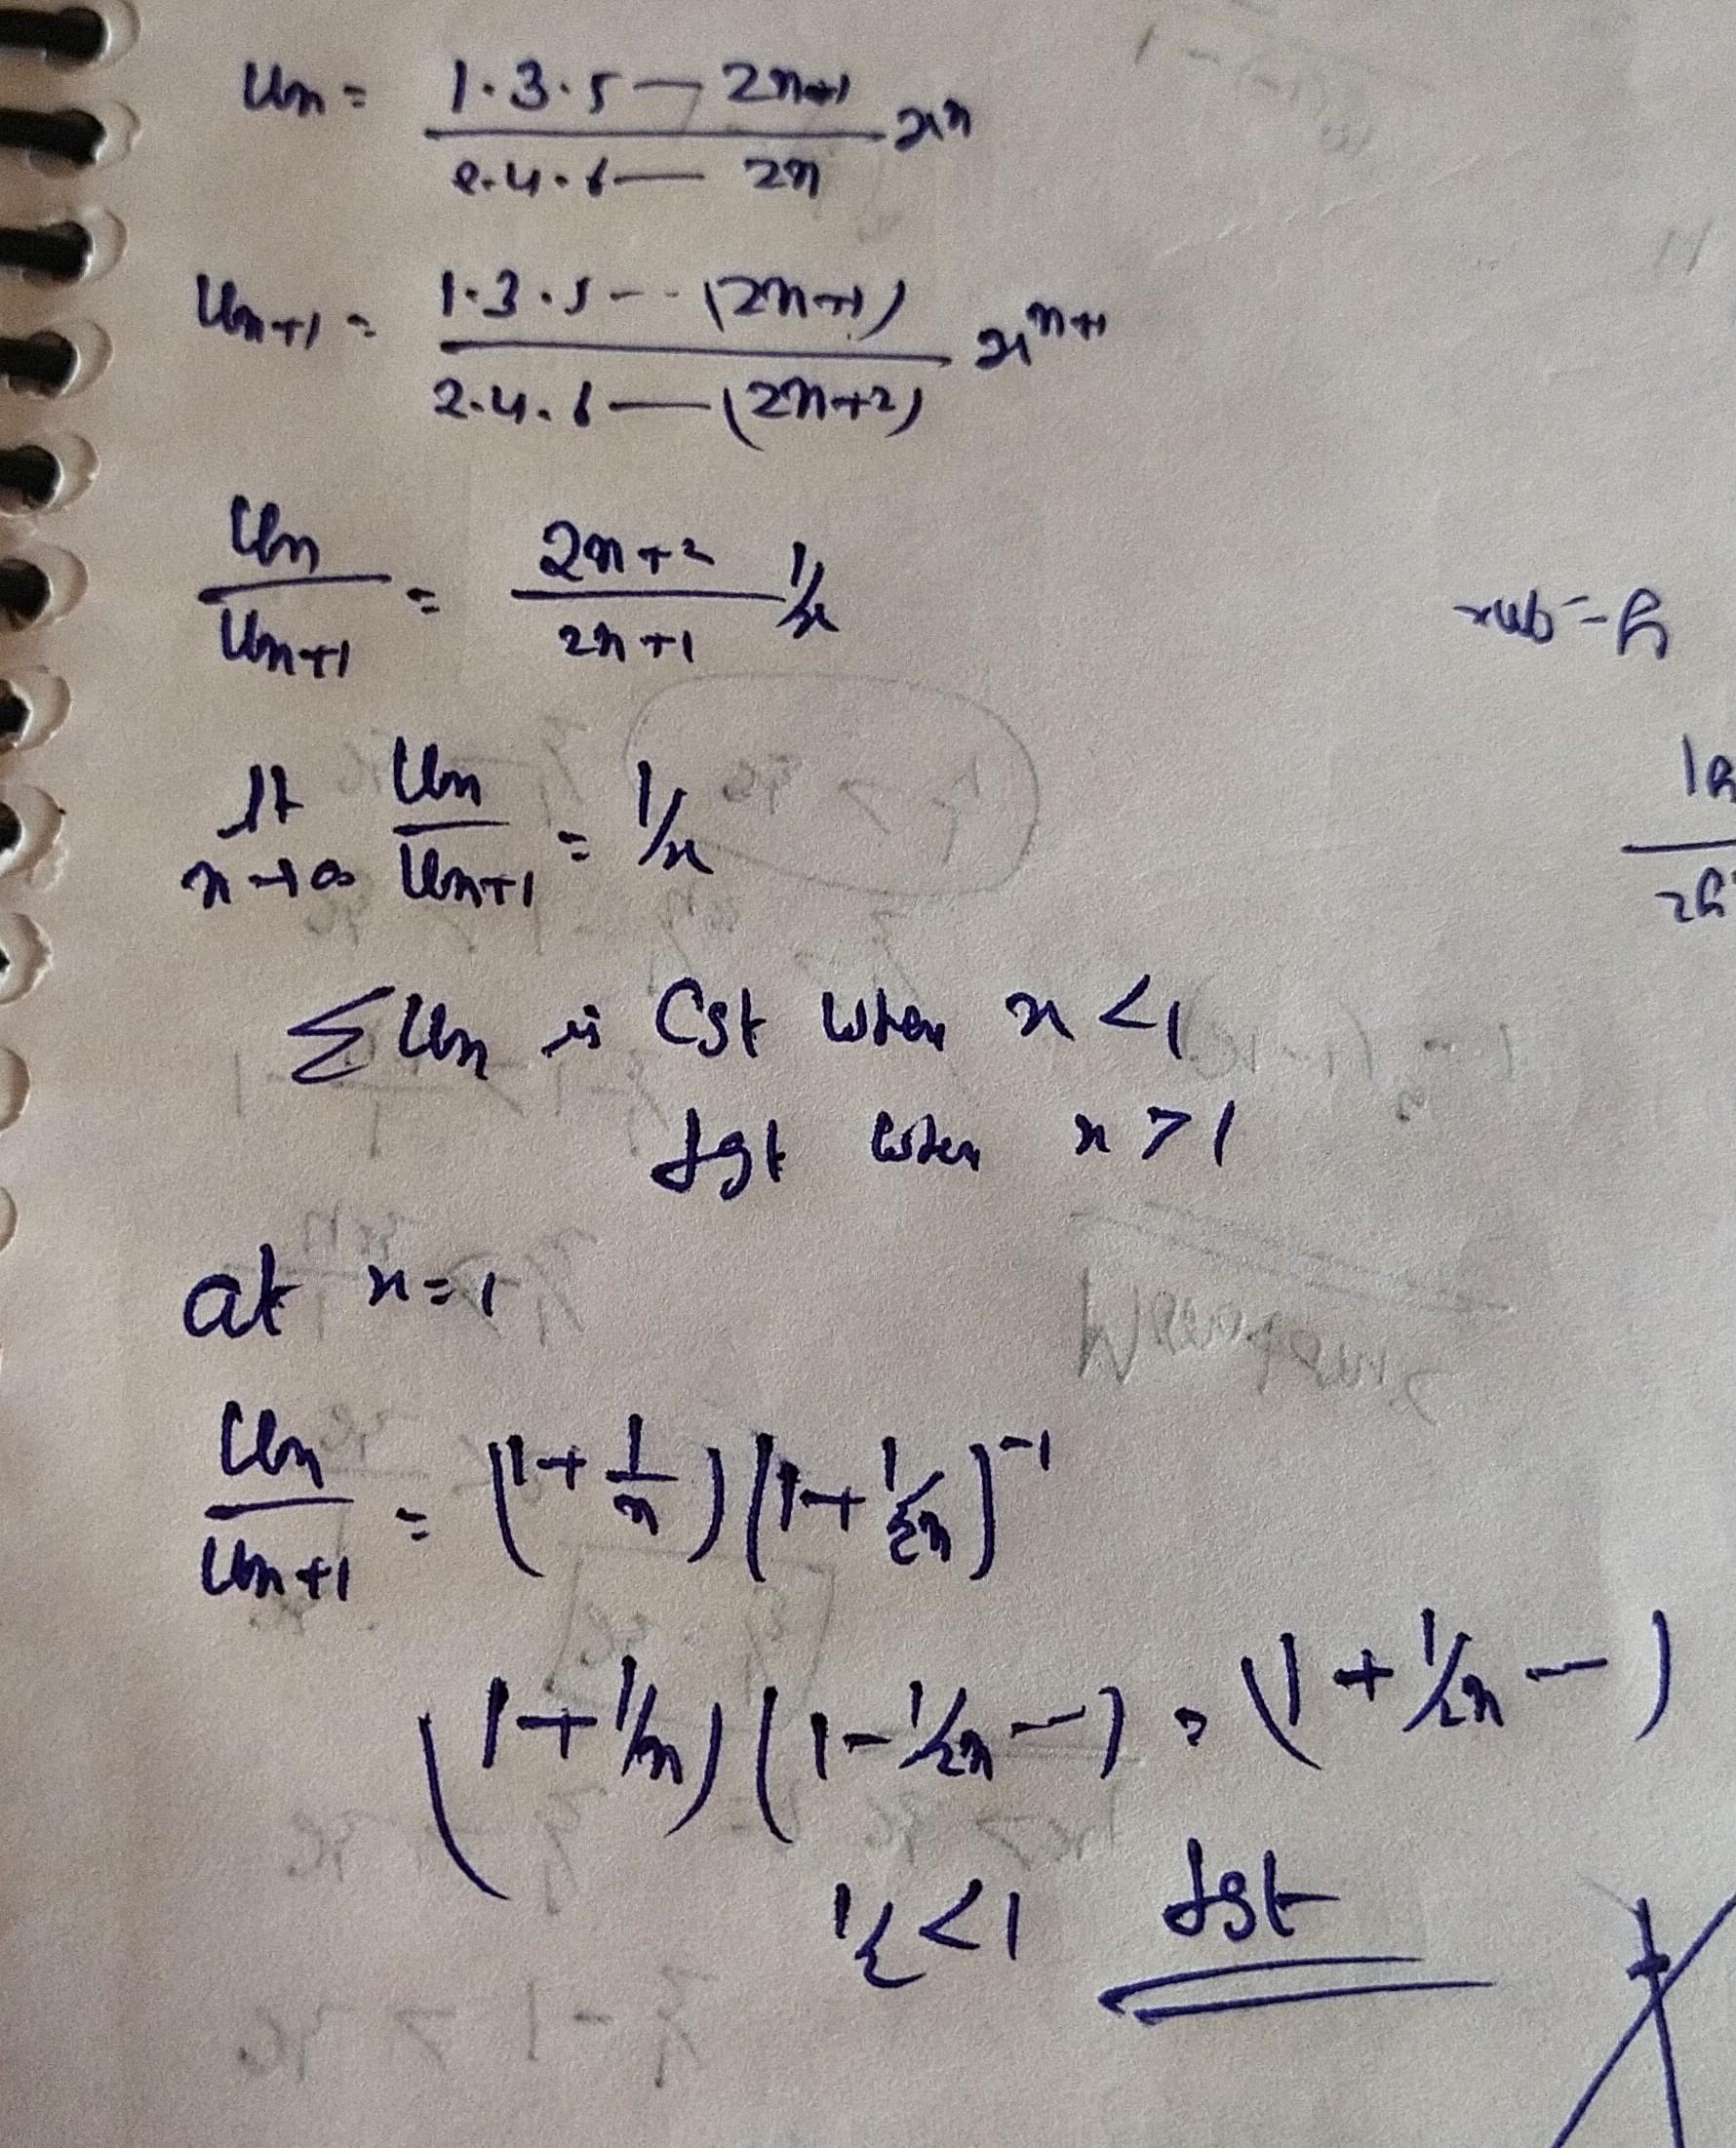 Un = 1·3·5 — 2n+1 / 2·4·6 — 2n x^n
Un+1 = 1·3·5 -- (2n+1) / 2·4·6 — (2n+2) x^n+1
Un / Un+1 = 2n+2 / 2n+1 1/x
lt n→∞ Un / Un+1 = 1/x
ΣUn is Cgt when x < 1
dgt when x > 1
at x = 1
Un / Un+1 = (1 + 1/n) (1 + 1/2n)^-1
(1 + 1/n) (1 - 1/2n —) = (1 + 1/2n —)
1/2 < 1 dgt